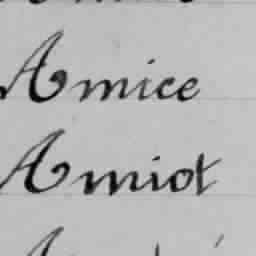 Amice
Amiot